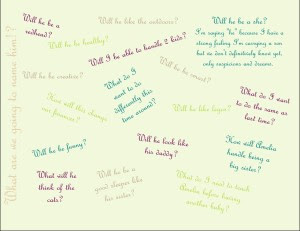 What are we going to name him!?
Will he be a
redhead?
Will he like the outdoors?
Will he be healthy?
Will I be able to handle 2 kids?
Will he be a she?
I'm saying "he" because I have a
strong feeling I'm carrying a son
but we don't definitively know yet,
only suspicions and dreams.
Will he be creative?
What do I
want to do
differently this
time around?
Will he be smart?
What do I want
to do the same as
last time?
How will this change
our finances?
Will he like
Will he be funny?
Will he look like
his daddy?
How will Amelia
handle being a
big sister?
What will he
think of the
cats?
Will he be a
good sleeper like
his sister?
What do I want to teach
Amelia before having
another baby?